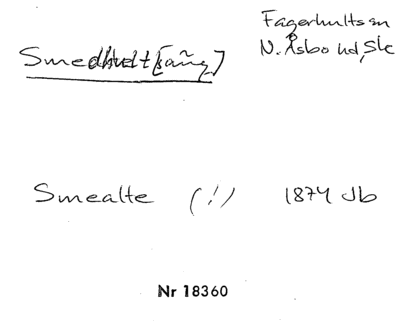 Fagerhults sn
Smedhult[säng] N. Åsbo hd, Sk
Smealte (!) 1874 Jb
Nr 18360